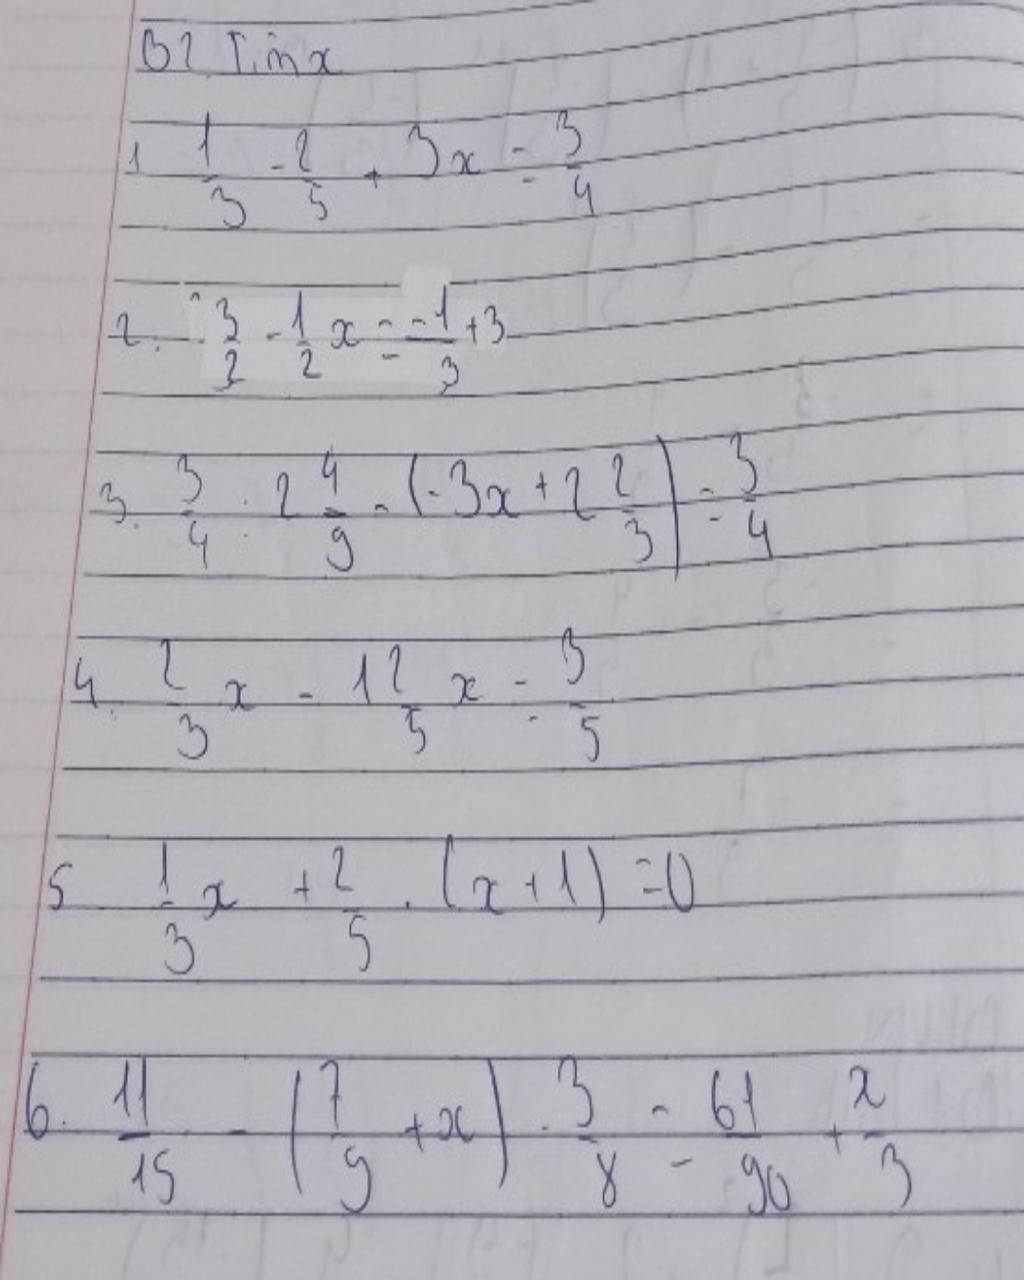 B2 Tìm x
1 1/3 - 2/5 + 3x = 3/4
2. 3/2 - 1/2 x = -1/3 + 3
3. 3/4 . 2 4/9 - (-3x + 2 2/3) = 3/4
4. 2/3 x - 1 2/5 x = 3/5
5 1/3 x + 2/5 . (x + 1) = 0
6. 11/15 - (7/9 + x) . 3/8 = 61/90 + x/3